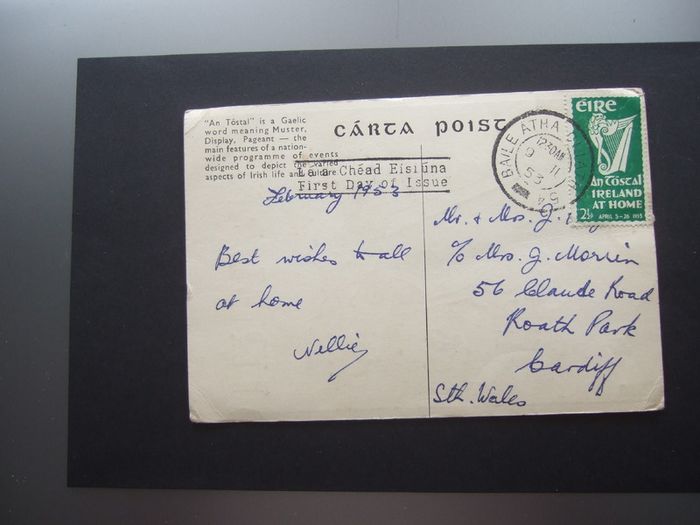 "An Tóstal" is a Gaelic
word meaning Muster,
Display, Pageant — the
main features of a nation-
wide programme of events
designed to depict the varied
aspects of Irish life and culture.
CÁRTA POIST
Lá a Chéad Eisiúna
First Day of Issue
February 1953
Best wishes to all
at home
Nellie
BAILE ÁTHA
12 30AM
9 II
53
éire
An Tóstal
IRELAND
AT HOME
2½
APRIL 5-26 1953
Mr. & Mrs. J.
c/o Mrs. J. Morrin
56 Claude Road
Roath Park
Cardiff
Sth. Wales